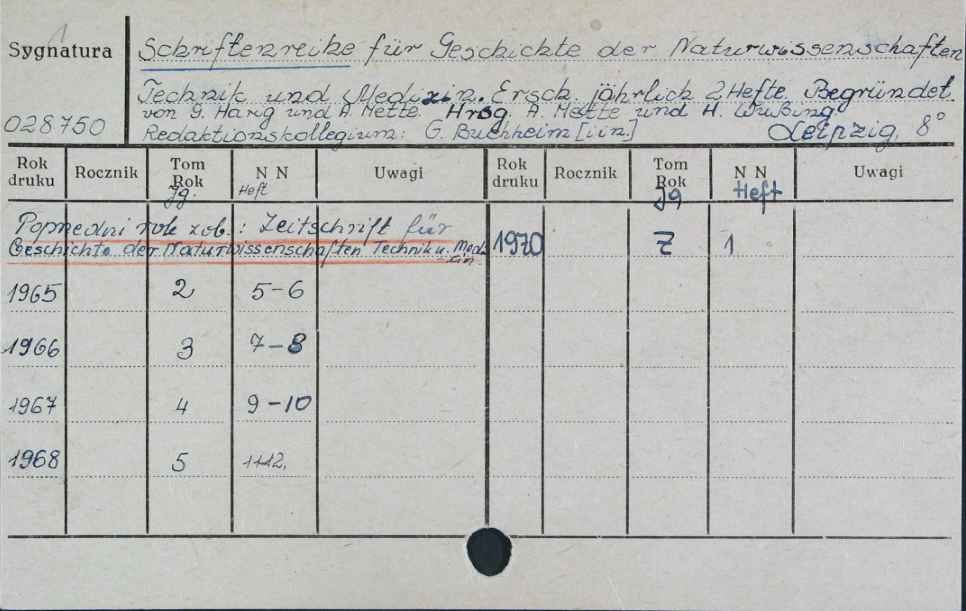 Sygnatura
028750
Schriftenreihe für Geschichte der Naturwissenschaften
Technik und Medizin. Ersch. jährlich 2 Hefte. Begründet.
von G. Harig und A. Mette. Hrsg. A. Mette und H. Wußing.
Redaktionskollegium: G. Buchheim [i in.] Leipzig. 8°
Rok druku Rocznik Tom Rok Jg. N N Heft Uwagi Rok druku Rocznik Tom Rok Jg N N Heft Uwagi
Poprzedni rok zob.: Zeitschrift für
Geschichte der Naturwissenschaften Technik u. Medizin.
1970 7 1
1965 2 5-6
1966 3 7-8
1967 4 9-10
1968 5 11-12.